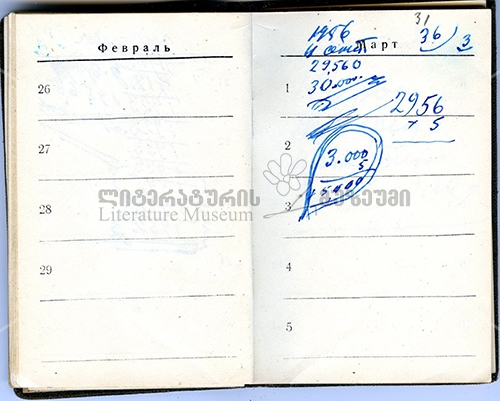 Февраль
26
27
28
29
31
1956
36
3
Март
29,560
1
30.000
2956
+ 5
2
3.000
5
3
4
5
ლიტერატურის მუზეუმი
Literature Museum